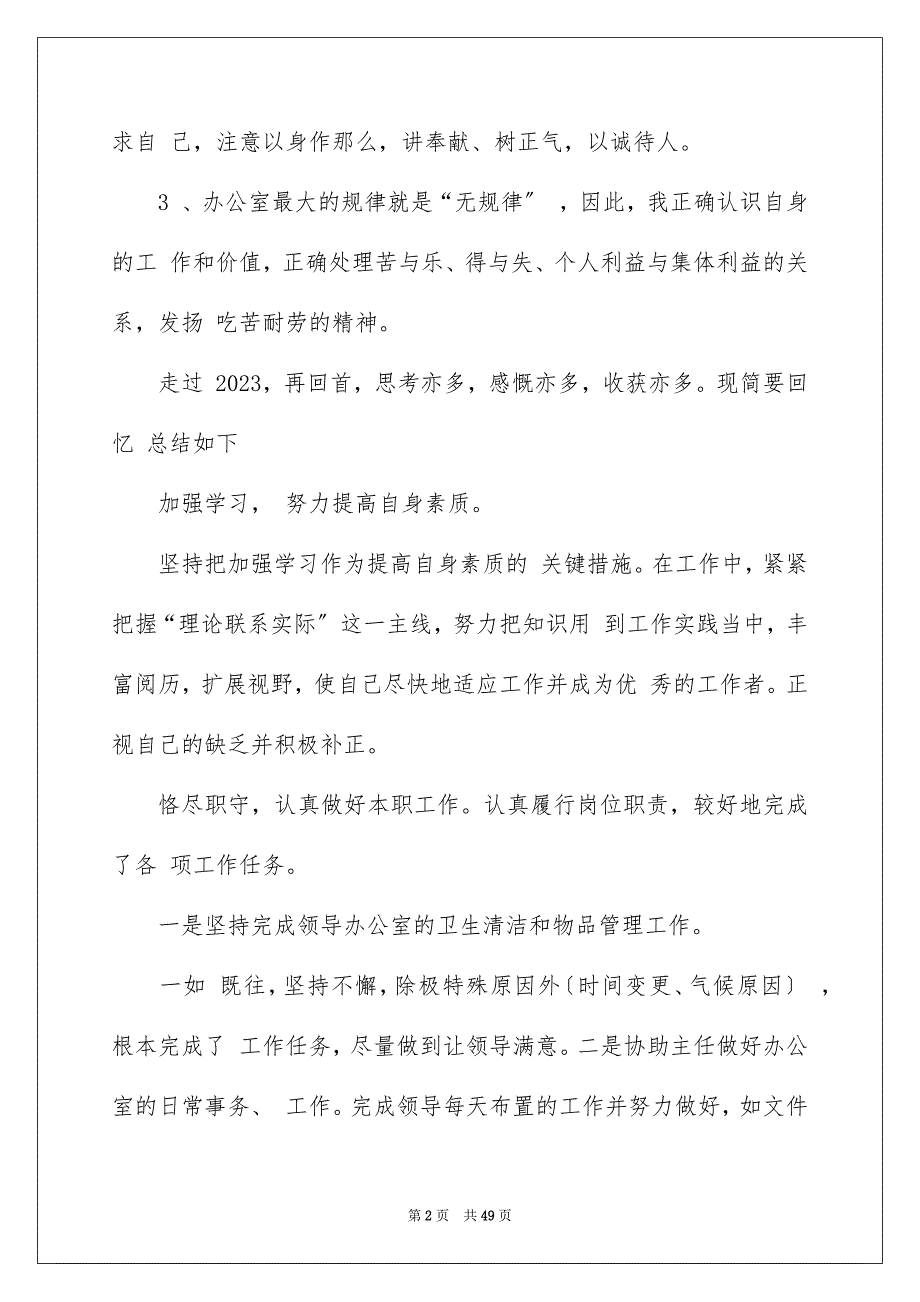 求自 己，注意以身作那么，讲奉献、树正气，以诚待人。
3 、办公室最大的规律就是“无规律〞 ，因此，我正确认识自身
的工 作和价值，正确处理苦与乐、得与失、个人利益与集体利益的关
系，发扬 吃苦耐劳的精神。
走过 2023，再回首，思考亦多，感慨亦多，收获亦多。现简要回
忆 总结如下
加强学习， 努力提高自身素质。
坚持把加强学习作为提高自身素质的 关键措施。在工作中，紧紧
把握“理论联系实际〞这一主线，努力把知识用 到工作实践当中，丰
富阅历，扩展视野，使自己尽快地适应工作并成为优 秀的工作者。正
视自己的缺乏并积极补正。
恪尽职守，认真做好本职工作。认真履行岗位职责，较好地完成
了各 项工作任务。
一是坚持完成领导办公室的卫生清洁和物品管理工作。
一如 既往，坚持不懈，除极特殊原因外〔时间变更、气候原因〕 ，
根本完成了 工作任务，尽量做到让领导满意。二是协助主任做好办公
室的日常事务、 工作。完成领导每天布置的工作并努力做好，如文件
第 2 页 共 49 页